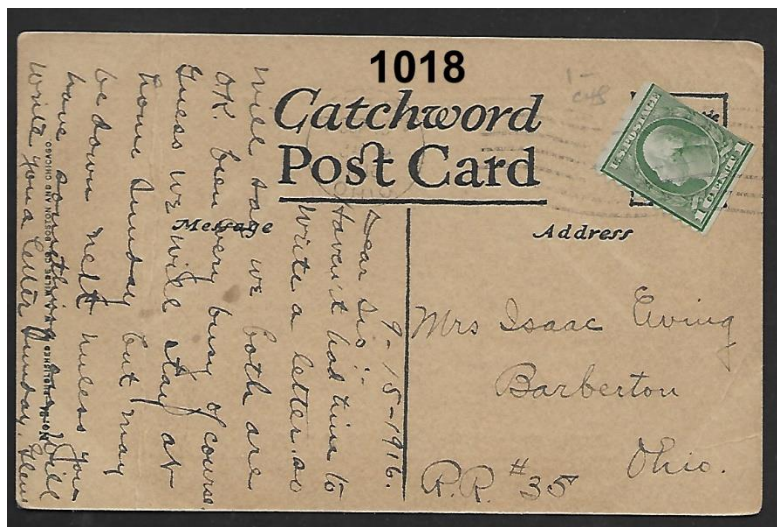 1018
1-
Catchword
Post Card
U.S. POSTAGE
1 CENT 1
Message
Address
9-15-1916.
Dear Sis:-
Haven't had time to
write a letter, so
will say we both are
OK. been very busy of course.
Guess we will stay at
home Sunday but may
be down next unless you
have something on. Will
write you a letter Sunday. Glenn
Mrs Isaac Ewing
Barberton
Ohio.
R.R. #35
PUBLISHED
WILDE CO. BOSTON AND CHICAGO